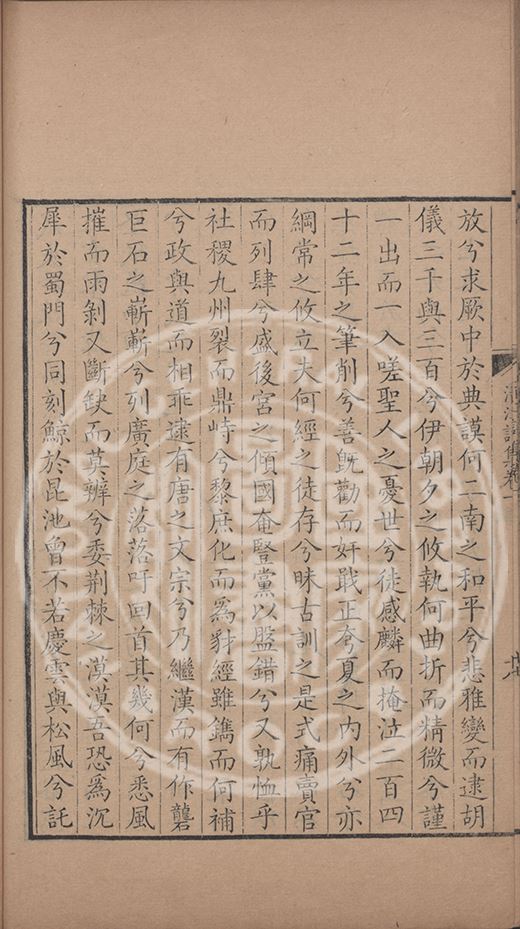 放兮求厥中於典謨何二南之和平兮悲雅變而逮胡
儀三千與三百兮伊朝夕之攸執何曲折而精微兮謹
一出而一入嗟聖人之憂世兮徒感麟而掩泣二百四
十二年之筆削兮善旣勸而奸戢正兮夏之內外兮亦
綱常之攸立夫何經之徒存兮昧古訓之是式痛賣官
而列肆兮盛後宮之傾國奄豎黨以盬錯兮又孰恤乎
社稷九州裂而鼎峙兮黎庶化而爲豺經雖鐫而何補
兮政與道而相乖逮有唐之文宗兮乃繼漢而有作礱
巨石之嶄嶄兮列廣庭之落落吁回首其幾何兮悉風
摧而雨剝又斷缺而莫辨兮委荆棘之漠漠吾恐爲沉
犀於蜀門兮同刻鯨於昆池曾不若慶雲與松風兮託